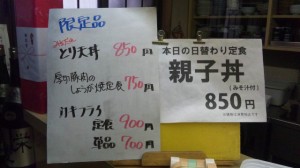 限定品
とり天丼 850円
厚切豚肉の
しょうが焼定食 750円
カキフライ
定食 900円
単品 700円
本日の日替わり定食
親子丼
(みそ汁付)
850円